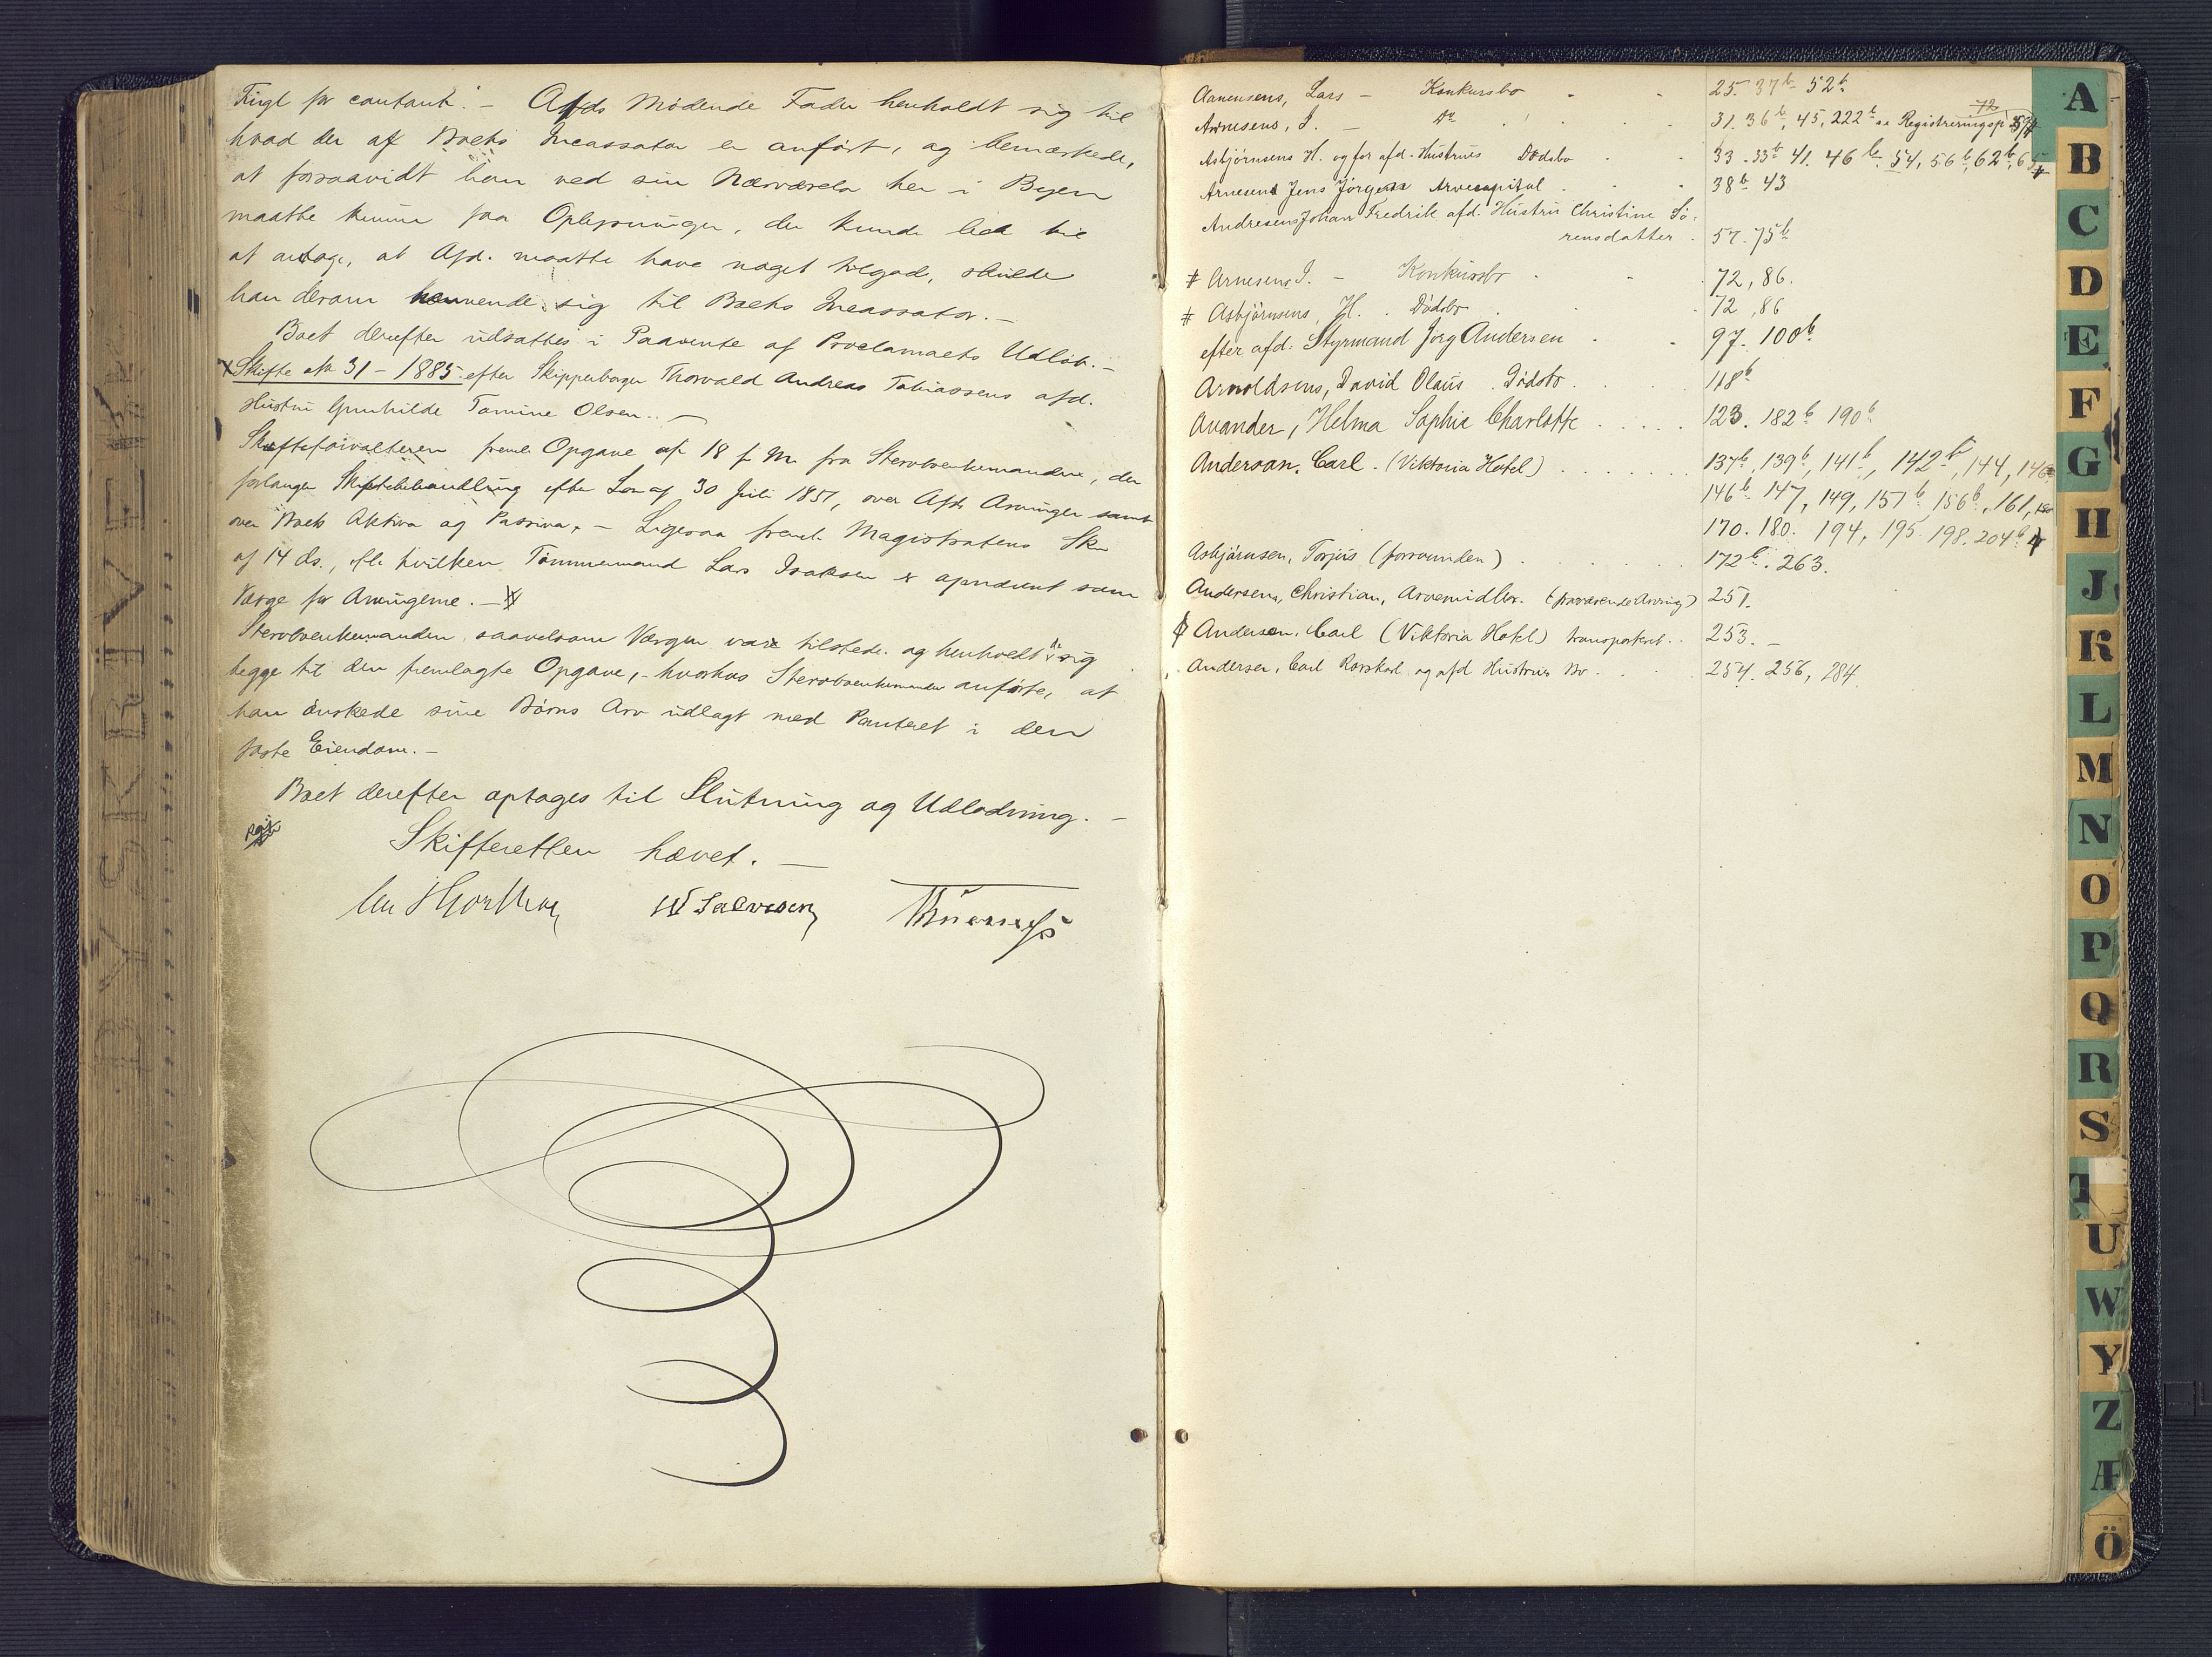 contant". – Afds Mødende Fader henholdt sig til
hvad der af Boets Incassator er anført, og bemærkede,
at forsaavidt han ved sin Nærværelse her i Byen
maatte kunne faa Oplysninger, der kunde lede til
at antage, at Afd. maatte have noget tilgode, skulde
han derom henvende sig til Boets Incassator. –
Boet derefter udsattes i Paavente af Proclamaets Udløb. –
Skifte No 31 – 1885 efter Skipperborger Thorvald Andreas Tobiassens afd.
Hustru Gunhilde Tomine Olsen. –
Skifteforvalteren freml. Opgave af 18 f. M. fra Stervboenkemanden, der
forlanger Skiftebehandling efter Lov af 30 Juli 1851, over Afds Arvinger samt
over Boets Aktiva og Passiva. – Ligesaa freml. Magistratens Skr.
af 14 ds., efter hvilken Tømmermand Lars Isaksen er opnævnt som
Værge for Arvingerne. –
Stervboenkemanden saavelsom Værgen vare tilstede og henholdt de sig
begge til den fremlagte Opgave, – hvorhos Stervboenkemanden anførte, at
han ønskede sine Børns Arv udlagt med Panteret i den
faste Eiendom. –
Boet derefter optages til Slutning og Udlodning. –
Skifteretten hævet. –
W Salvesen
Aanensens, Lars – Konkursbo 25. 37b 52b
72
Arnesens, J. – Do 31. 36b, 45, 222b Registreringsp.
Asbjørnsens H. og for afd. Hustrues Dødsbo 33. 33b 41. 46b. 54, 56b, 62b, 65
Arnesens Jens Jørgens Arvecapital 38b 43
Andresens Johan Fredrik afd. Hustru Christine Sø-
rensdatter. 57. 75b
# Arnesens J. – Konkursbo 72, 86.
# Asbjørnsens, H. Dødsbo 72, 86
efter afd. Styrmand Jørg Andersen 97. 100b
Arnoldsens, David Olaus Dødsbo 118b
Avander, Helma Sophie Charlotte 123. 182b 190b
Andersen, Carl. (Viktoria Hotel) 137b, 139b, 141b, 142b, 144, 146
146b 147, 149, 151b 156b, 161,
170. 180. 194, 195. 198. 204b
Asbjørnsen, Torjus (forsvunden) 172b. 263.
Andersens, Christian, Arvemidler. (fraværende Arving) 251.
Andersen, Carl (Viktoria Hotel) transporteret 253. –
Andersen, Carl Rorskarl og afd Hustrues Bo 254. 256, 284
A
B
C
D
E
F
G
H
J
K
L
M
N
O
P
Q
R
S
T
U
W
Y
Z
Æ
Ö